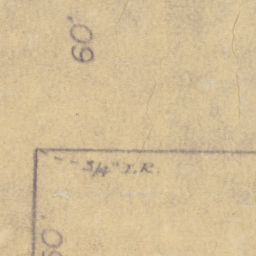 60'
3/4" I.R.
50'